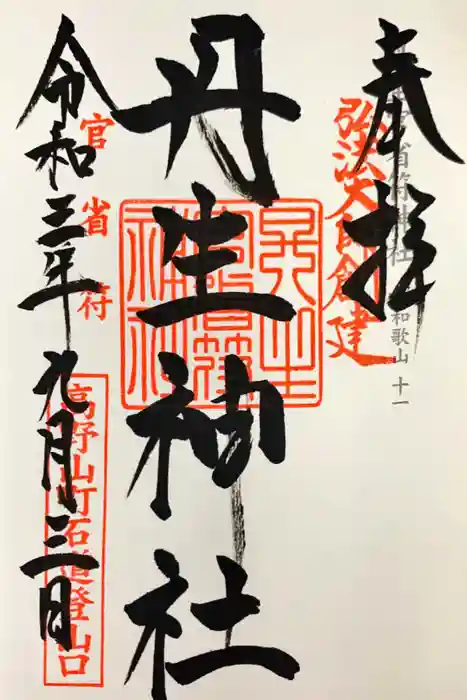 奉拝
丹生官省符神社
和歌山 十一
弘法大師創建
丹生神社
丹生官省符神社
官省符
令和三年九月三日
高野山町石道登山口